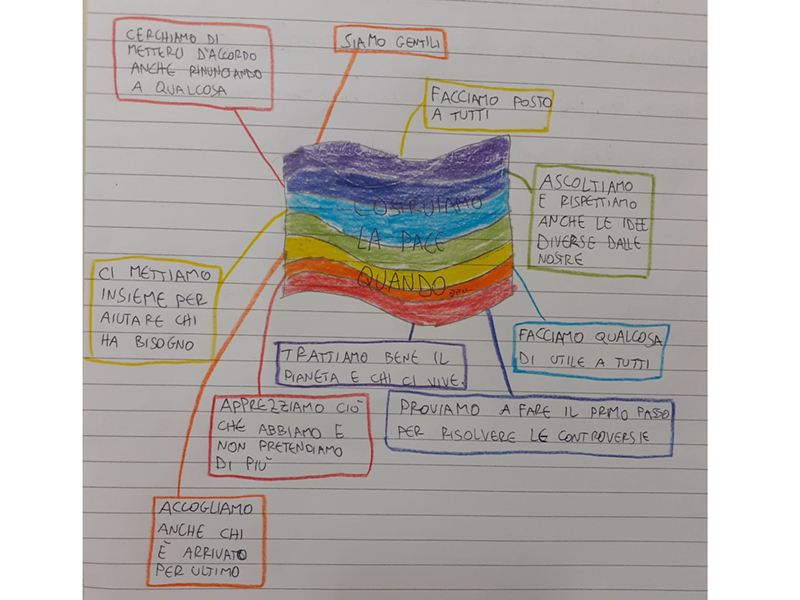 CERCHIAMO DI
METTERCI D'ACCORDO
ANCHE RINUNCIANDO
A QUALCOSA
SIAMO GENTILI
FACCIAMO POSTO
A TUTTI
ASCOLTIAMO
E RISPETTIAMO
ANCHE LE IDEE
DIVERSE DALLE
NOSTRE
COSTRUIAMO
LA PACE
QUANDO...
CI METTIAMO
INSIEME PER
AIUTARE CHI
HA BISOGNO
FACCIAMO QUALCOSA
DI UTILE A TUTTI
TRATTIAMO BENE IL
PIANETA E CHI CI VIVE.
APPREZZIAMO CIÒ
CHE ABBIAMO E
NON PRETENDIAMO
DI PIÙ
PROVIAMO A FARE IL PRIMO PASSO
PER RISOLVERE LE CONTROVERSIE
ACCOGLIAMO
ANCHE CHI
È ARRIVATO
PER ULTIMO